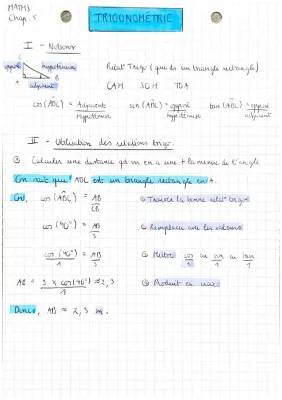 MATHS
Chap. 5
TRIGONOMÉTRIE
I - Notions
C
opposé
hypoténuse
A
B
adjacent
Relat° Trigo (que ds un triangle rectangle)
CAH SOH TOA
cos (ABC) = Adjacent / Hypoténuse
sin (ABC) = opposé / Hypoténuse
tan (ABC) = opposé / adjacent
II - Utilisation des relations trigo.
Calculer une distance qd on en a une + la mesure de l'angle
On sait que ABC est un triangle rectangle en A.
Or, cos (ABC) = AB / CB
Trouver la bonne relat° trigo
cos (40°) = AB / 3
Remplacer avec les valeurs
cos (40°) / 1 = AB / 3
Mettre cos / 1 ou sin / 1 ou tan / 1
AB = 3 × cos (40°) / 1 ≈ 2,3
Produit en croix
Donc, AB ≈ 2,3 m.